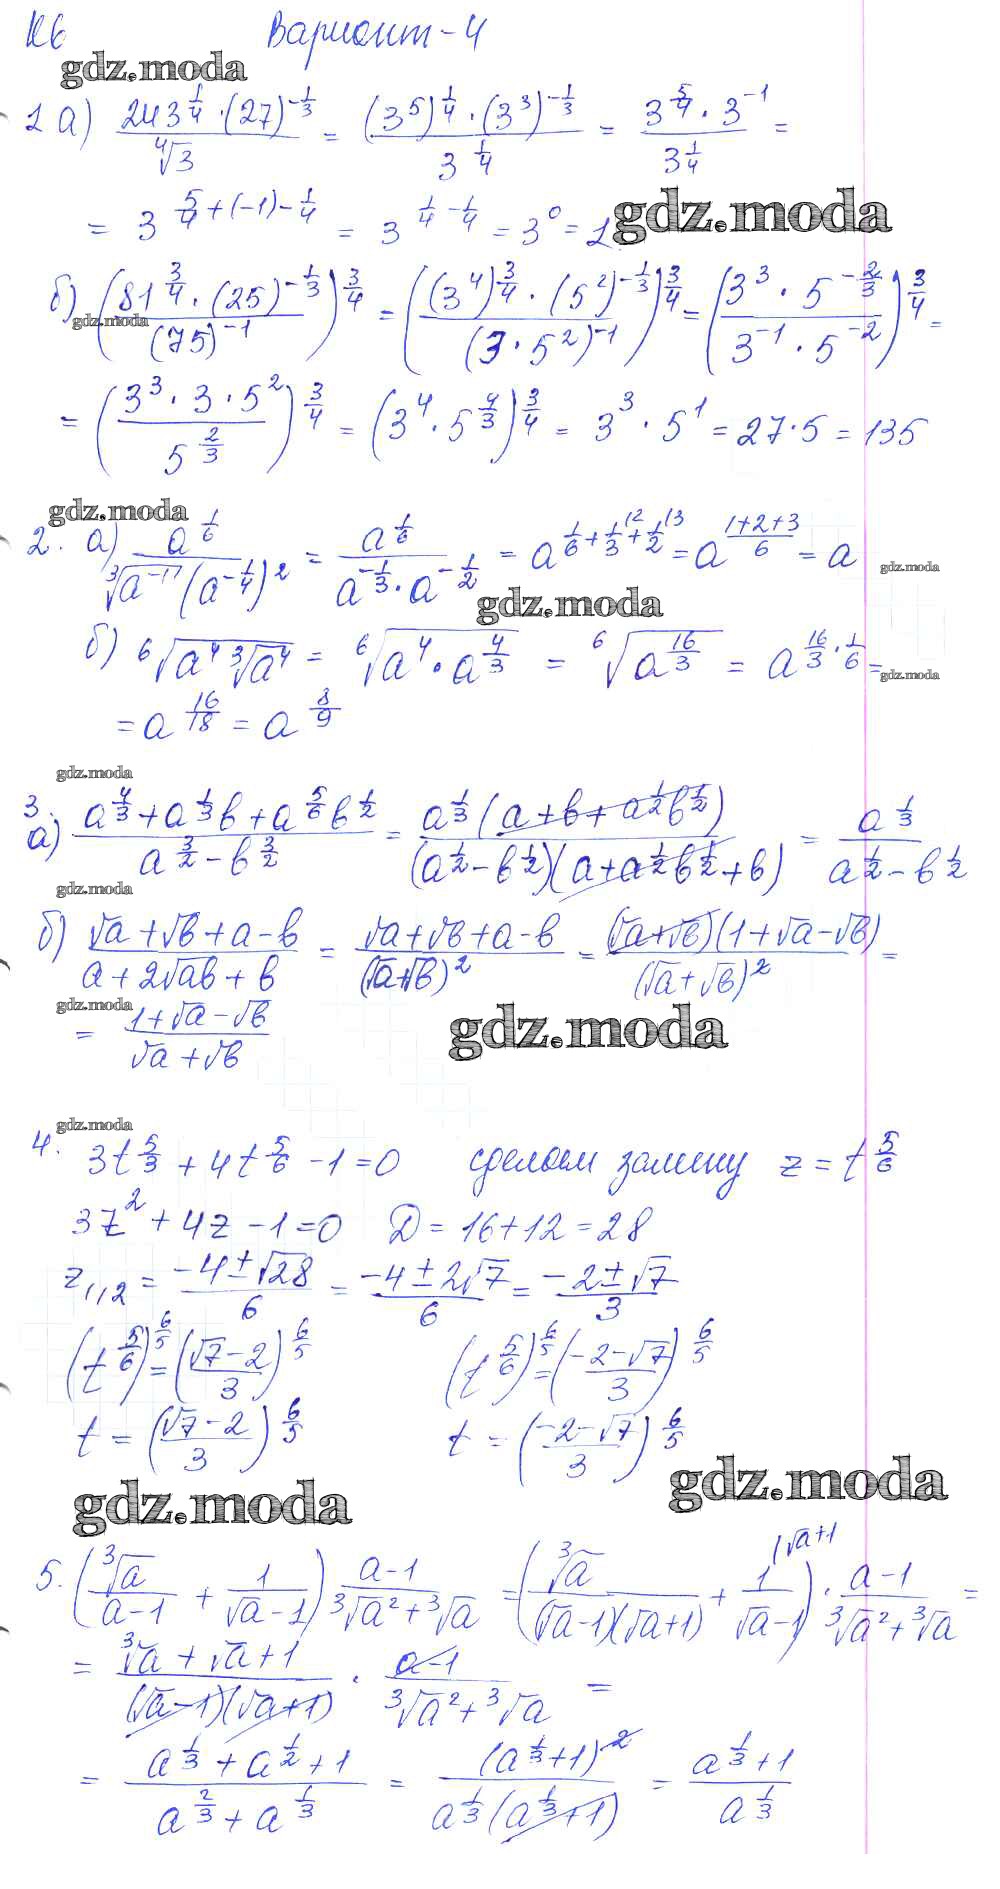 К6 Вариант-4
gdz.moda
1 а) (243^(1/4) · (27)^(-1/3)) / ⁴√3 = ((3^5)^(1/4) · (3^3)^(-1/3)) / 3^(1/4) = (3^(5/4) · 3^(-1)) / 3^(1/4) =
= 3^(5/4+(-1)-1/4) = 3^(1/4-1/4) = 3^0 = 1. gdz.moda
б) ((81^(3/4) · (25)^(-1/3)) / (75)^(-1))^(3/4) = (((3^4)^(3/4) · (5^2)^(-1/3)) / (3·5^2)^(-1))^(3/4) = ((3^3 · 5^(-2/3)) / (3^(-1) · 5^(-2)))^(3/4) =
gdz.moda
= ((3^3 · 3 · 5^2) / 5^(2/3))^(3/4) = (3^4 · 5^(4/3))^(3/4) = 3^3 · 5^1 = 27·5 = 135
gdz.moda
2. а) a^(1/6) / (³√(a^(-1)) (a^(-1/4))^2) = a^(1/6) / (a^(-1/3) · a^(-1/2)) = a^(1/6+1/3+1/2) = a^((1+2+3)/6) = a gdz.moda
gdz.moda
б) ⁶√(a^4 ³√(a^4)) = ⁶√(a^4 · a^(4/3)) = ⁶√(a^(16/3)) = a^(16/3 · 1/6) = gdz.moda
= a^(16/18) = a^(8/9)
gdz.moda
3. а) (a^(4/3) + a^(1/3)b + a^(5/6)b^(1/2)) / (a^(3/2) - b^(3/2)) = (a^(1/3)(a + b + a^(1/2)b^(1/2))) / ((a^(1/2) - b^(1/2))(a + a^(1/2)b^(1/2) + b)) = a^(1/3) / (a^(1/2) - b^(1/2))
gdz.moda
б) (√a + √b + a - b) / (a + 2√ab + b) = (√a + √b + a - b) / (√a+√b)^2 = ((√a+√b)(1+√a-√b)) / (√a+√b)^2 =
gdz.moda
= (1+√a-√b) / (√a+√b) gdz.moda
gdz.moda
4. 3t^(5/3) + 4t^(5/6) - 1 = 0 сделаем замену z = t^(5/6)
3z^2 + 4z - 1 = 0 D = 16+12 = 28
z1,2 = (-4±√28)/6 = (-4±2√7)/6 = (-2±√7)/3
(t^(5/6))^(6/5) = ((√7-2)/3)^(6/5) (t^(5/6))^(6/5) = ((-2-√7)/3)^(6/5)
t = ((√7-2)/3)^(6/5) t = ((-2-√7)/3)^(6/5)
gdz.moda gdz.moda
5. (³√a/(a-1) + 1/(√a-1)) (a-1)/(³√a² + ³√a) = (³√a/((√a-1)(√a+1)) + 1/(√a-1) (√a+1) · (a-1)/(³√a² + ³√a) =
= (³√a + √a + 1)/((√a-1)(√a+1)) · (a-1)/(³√a² + ³√a) =
= (a^(1/3) + a^(1/2) + 1)/(a^(2/3) + a^(1/3)) = (a^(1/3)+1)^2 / (a^(1/3)(a^(1/3)+1)) = (a^(1/3)+1)/a^(1/3)